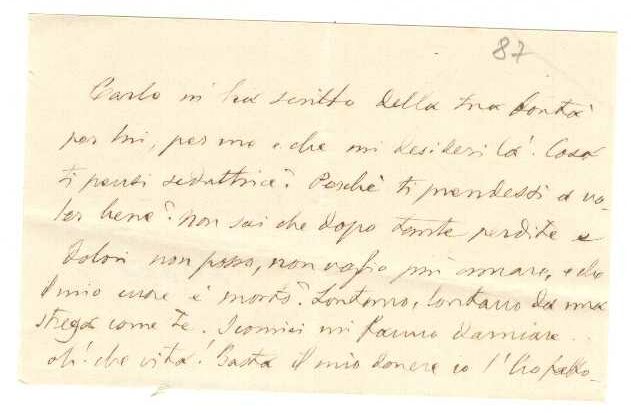 87
Carlo mi ha scritto della tua bontà
per lui, per me e che mi desideri là. Cosa
ti pensi seduttrice? Perché ti prendessi a vo-
ler bene? Non sai che dopo tante perdite e
dolori non posso, non voglio più amare, e che
il mio cuore è morto? Lontano, lontano da una
strega come te. I comici mi fanno dannare..
oh! che vita! Basta il mio dovere io l'ho fatto.